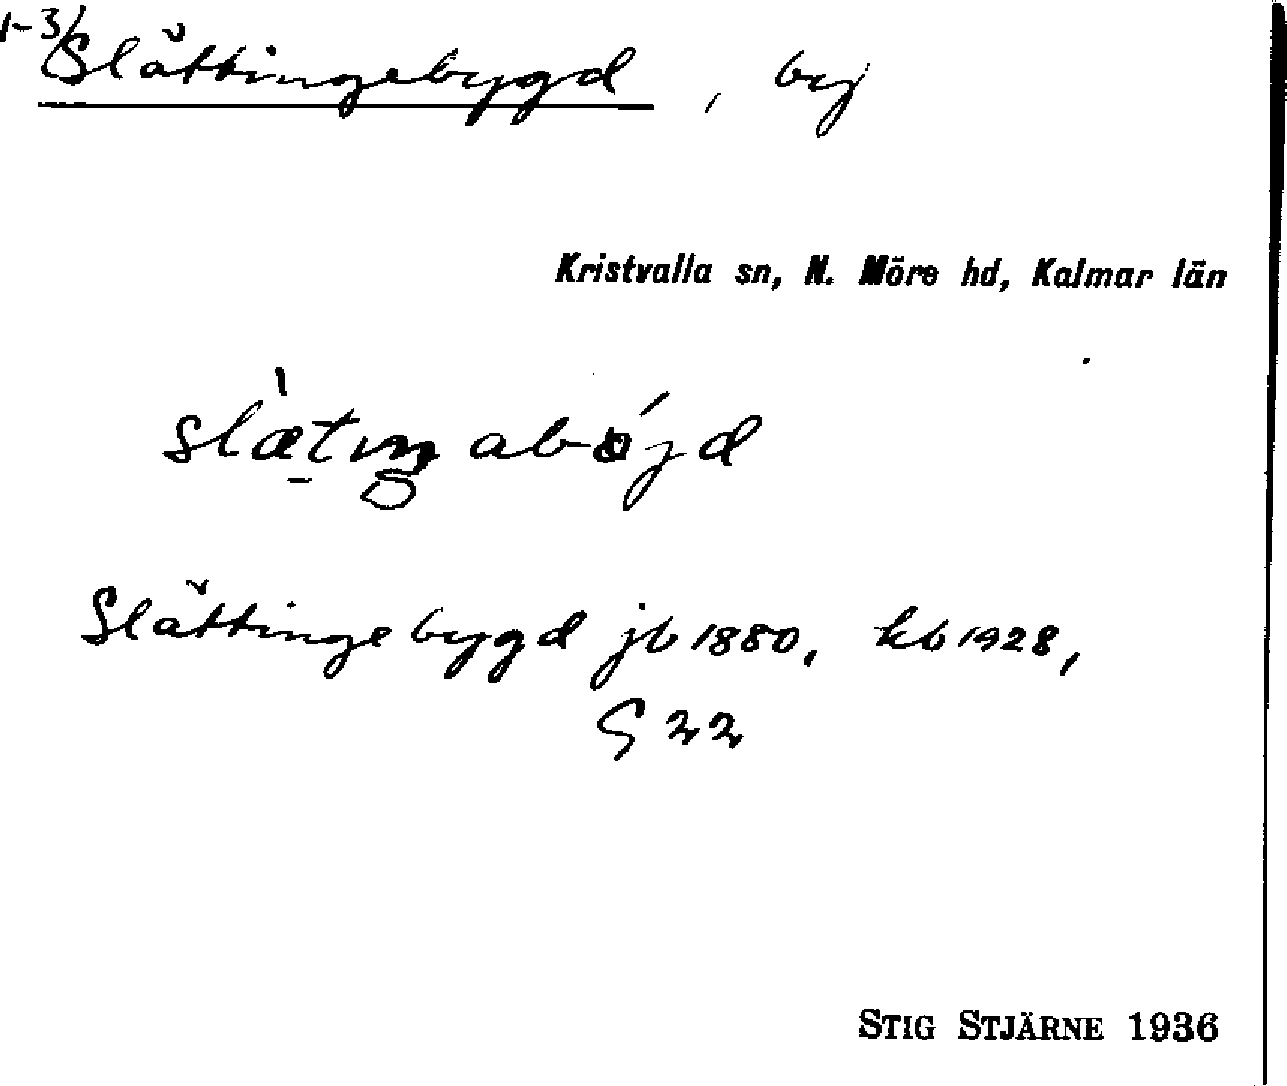 1-3/
Slättingebygd, by
Kristvalla sn, N. Möre hd, Kalmar län
Slättingebygd jb 1880, kb 1928,
G 22
STIG STJÄRNE 1936